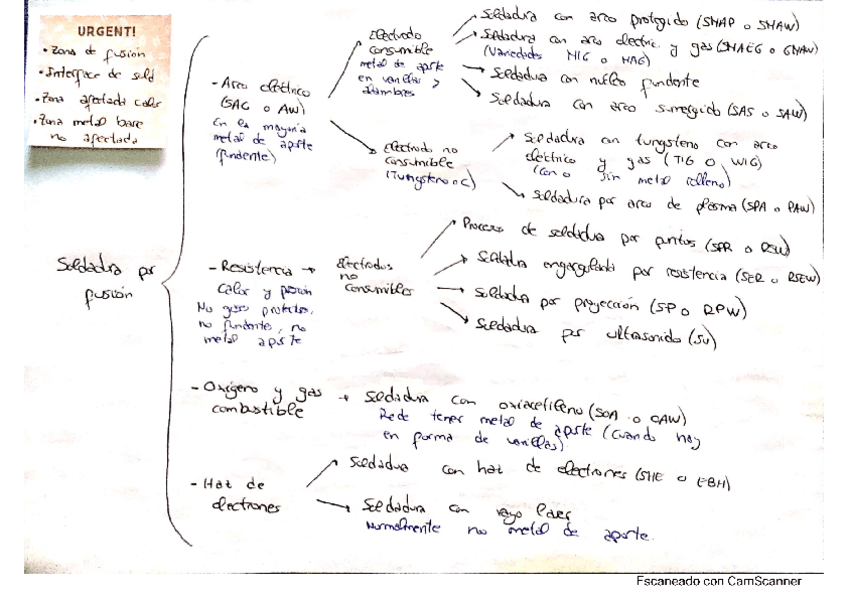 URGENT!
• Zona de fusión
• Interface de sold
• Zona afectada calor
• Zona metal base
no afectada
Soldadura por
fusión
- Arco eléctrico
(SAC o AW)
En la mayoría
metal de aporte
(fundente)
Electrodo
consumible
metal de aporte
en varillas y
alambres
Soldadura con arco protegido (SMAP o SMAW)
Soldadura con arco electric. y gas (SMAEG o GMAW)
(Variedades MIG o MAG)
Soldadura con nucleo fundente
Soldadura con arco sumergido (SAS o SAW)
Electrodo no
consumible
(Tungsteno o C)
Soldadura con tungsteno con arco
eléctrico y gas (TIG O WIG)
(con o sin metal relleno)
Soldadura por arco de plasma (SPA o PAW)
- Resistencia →
Calor y presión
No gases protectos,
no fundentes, no
metal aporte
Electrodos
no
consumibles
Proceso de soldadura por puntos (SPR o RSW)
Soldadura engargolada por resistencia (SER o RSEW)
Soldadura por proyección (SP o RPW)
Soldadura por ultrasonido (SU)
- Oxígeno y gas
combustible
→ Soldadura con oxiacetileno (SOA o OAW)
Puede tener metal de aporte (Cuando hay
en forma de varillas)
- Haz de
electrones
Soldadura con haz de electrones (SHE o EBH)
Soldadura con rayo laser
Normalmente no metal de aporte.
Escaneado con CamScanner